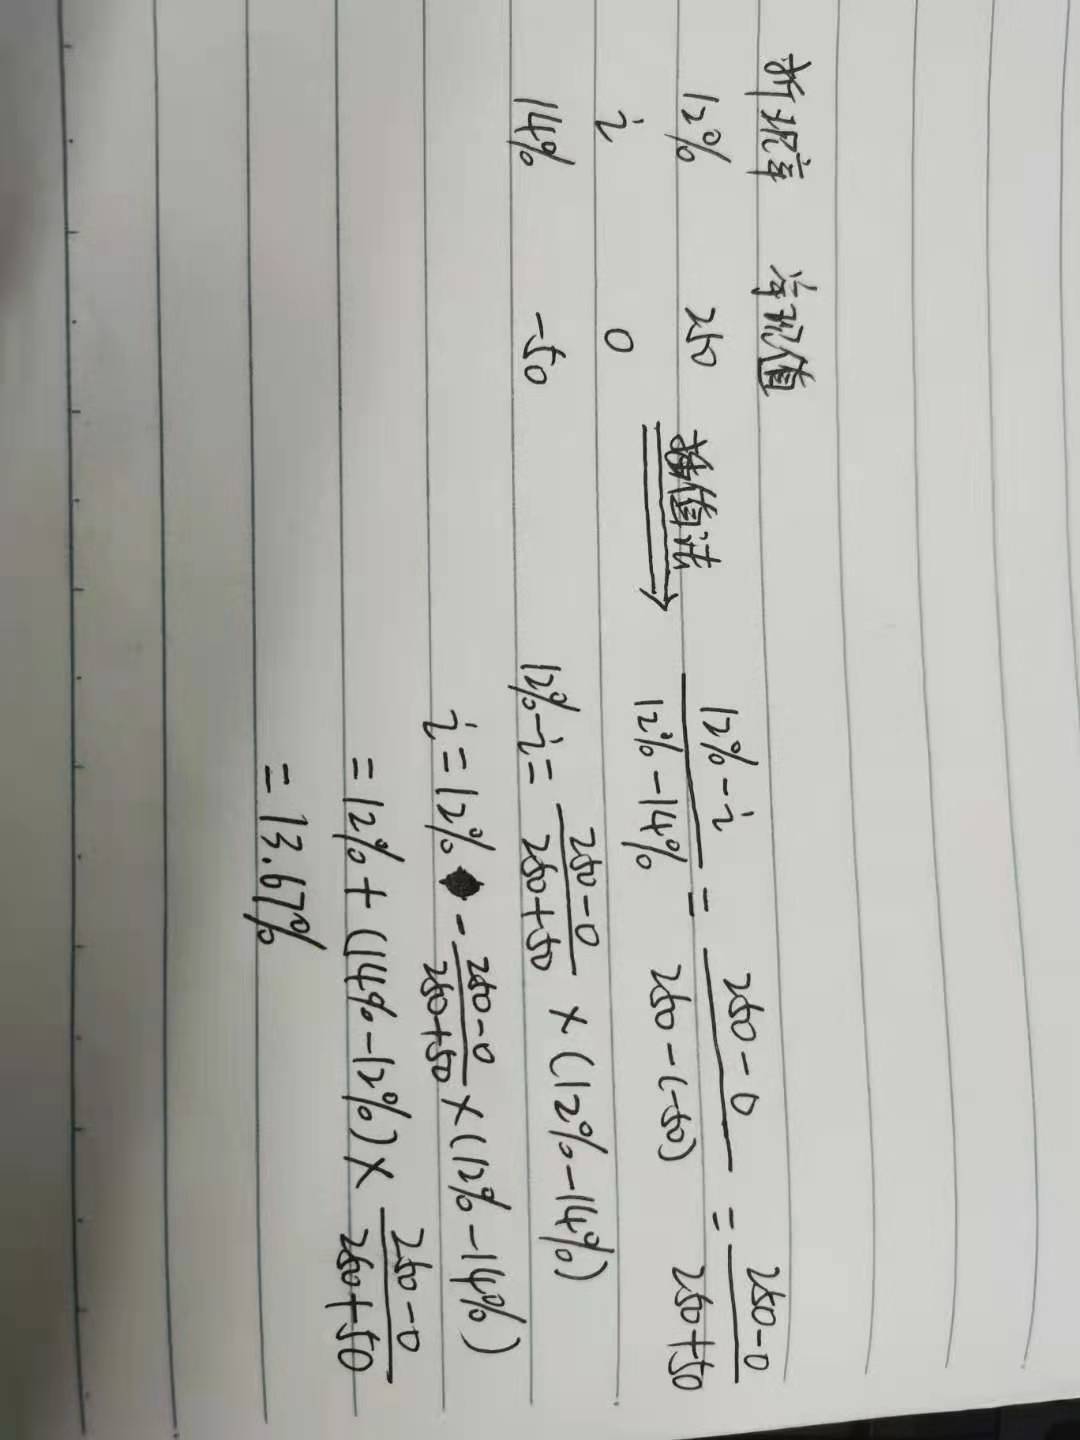 折现率 净现值
12% 250
i 0
14% -50
插值法
(12%-i)/(12%-14%) = (250-0)/(250-(-50)) = (250-0)/(250+50)
12%-i = (250-0)/(250+50) × (12%-14%)
i = 12% - (250-0)/(250+50) × (12%-14%)
= 12% + (14%-12%) × (250-0)/(250+50)
= 13.67%